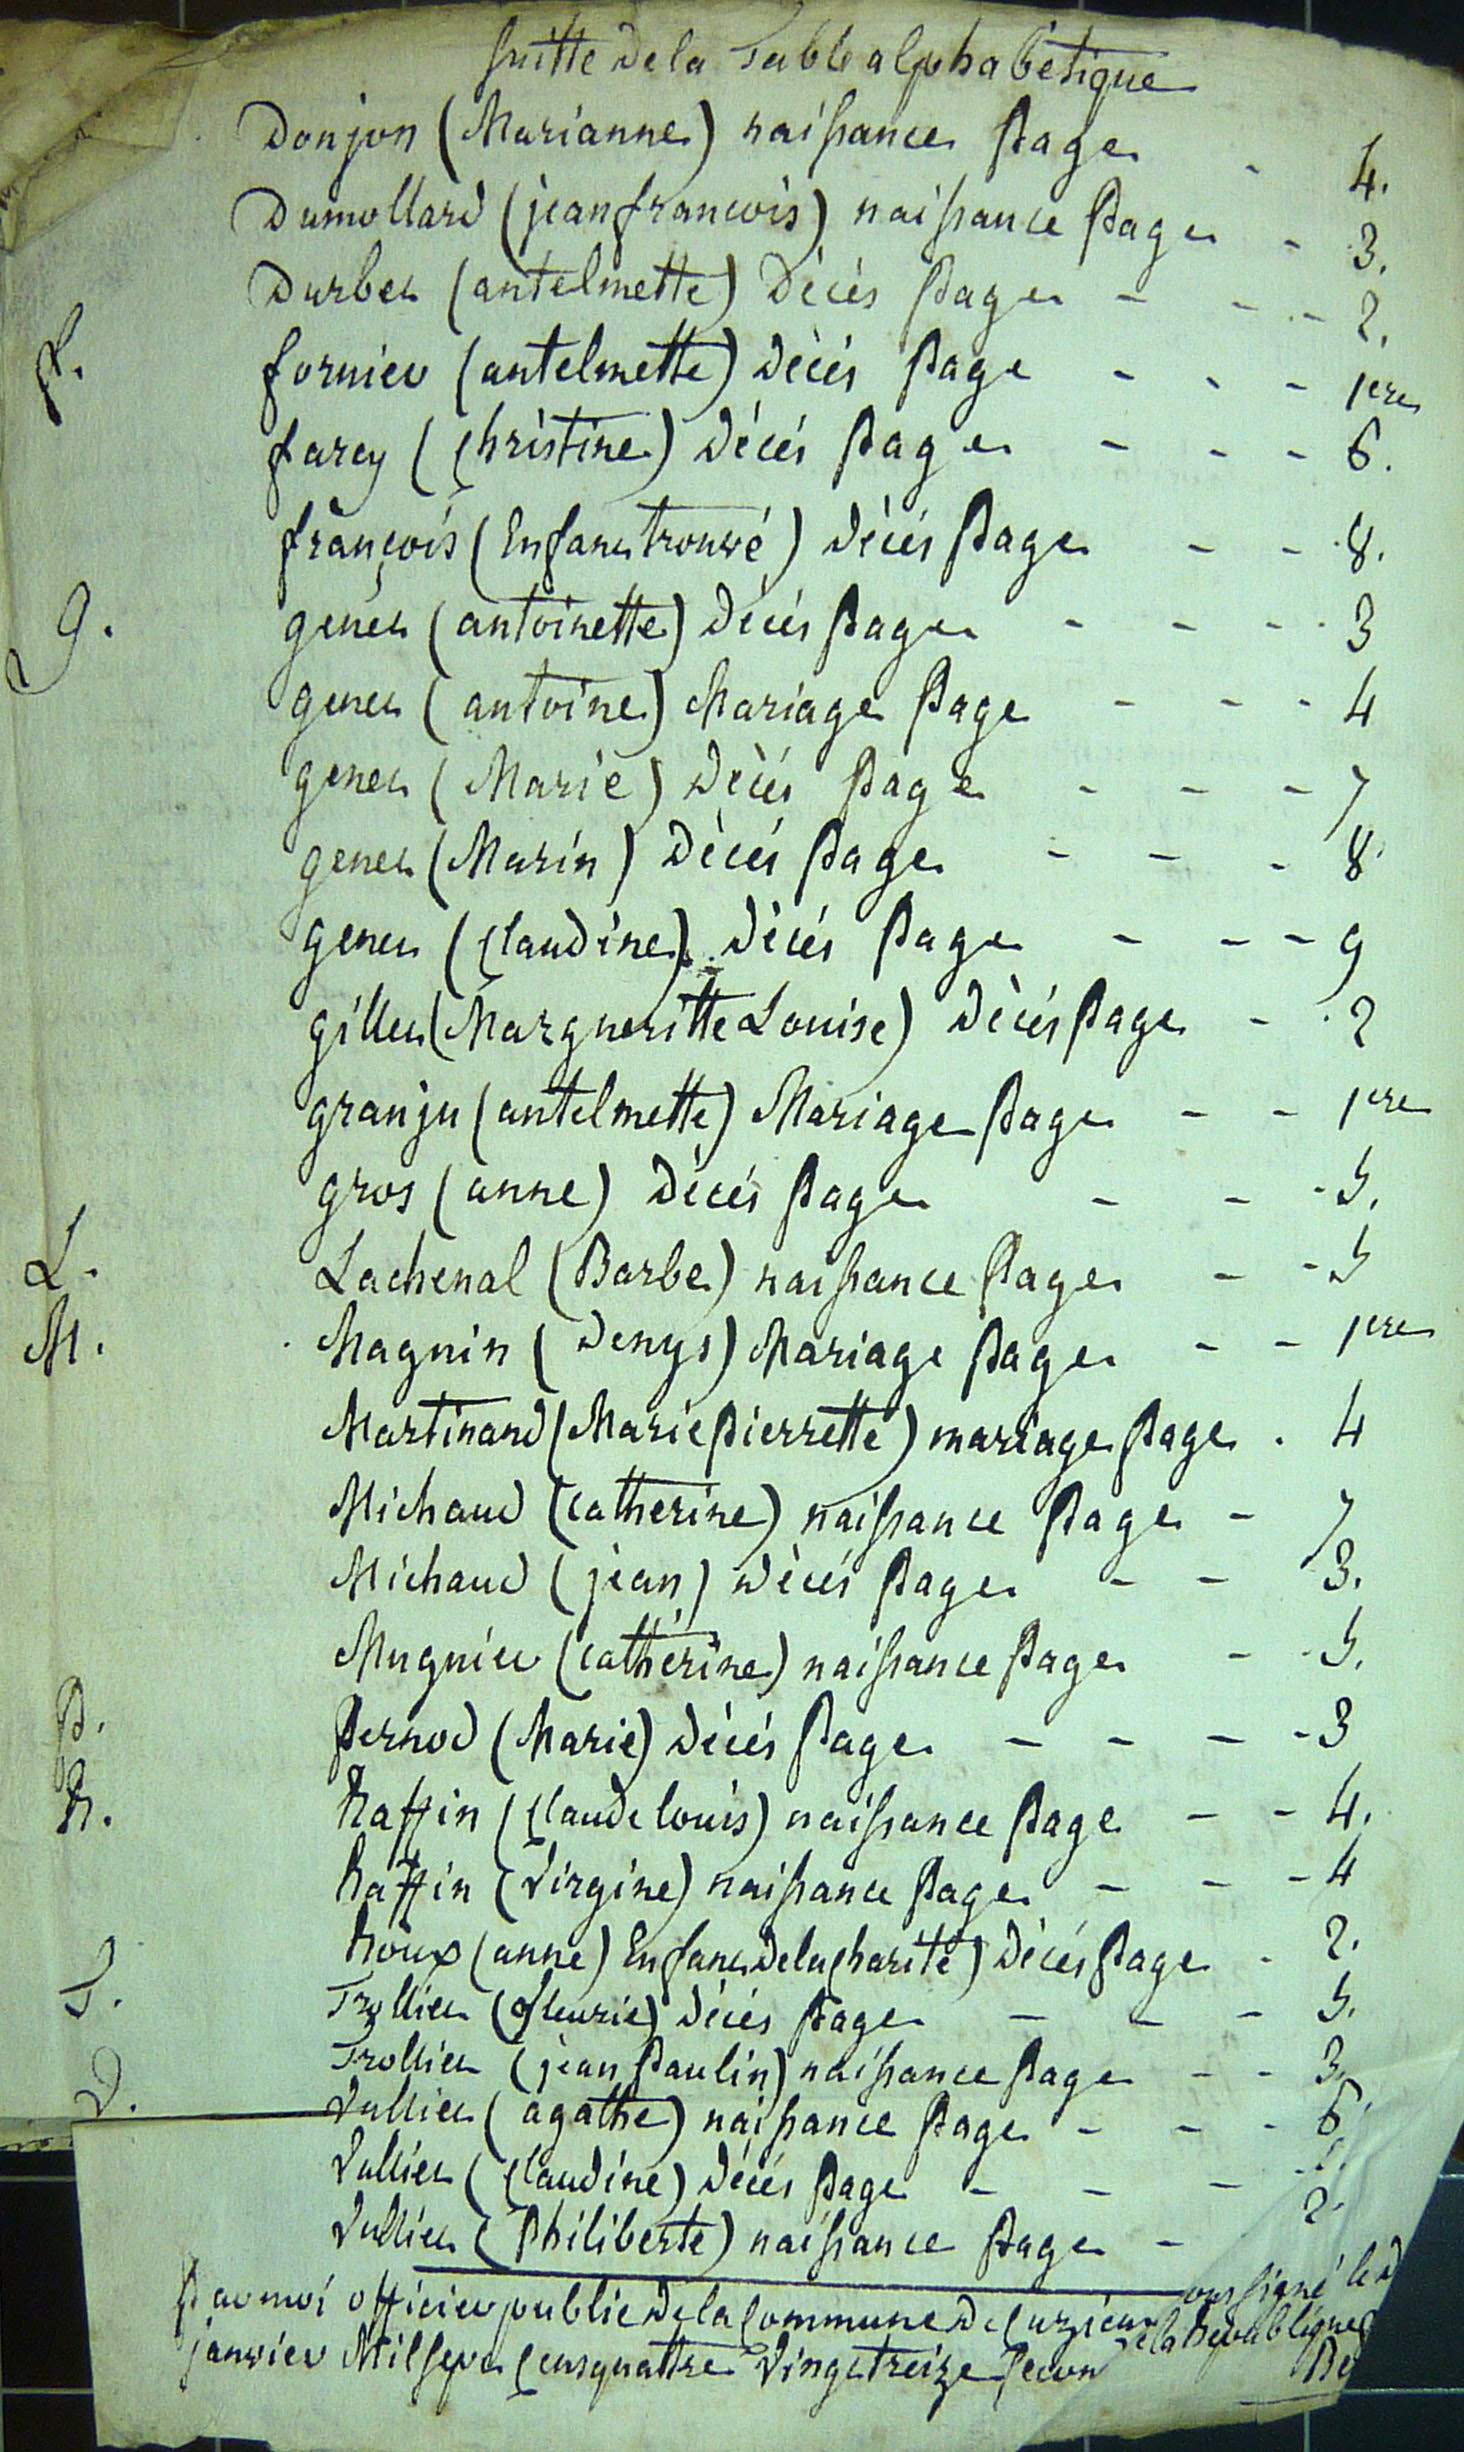 suitte de la Table alphabetique
Donjon (Marianne) naissance Page - 4.
Dumollard (jean francois) naissance Page - 3.
Durbet (antelmette) Décés Page - - - 2.
f. fornier (antelmette) Décés Page - - - 1ere
farcy (Christine) Décés Page - - - 6.
françois (Enfant trouvé) Décés Page - - 8.
g. genet (antoinette) Décés Page - - - 3
genet (antoine) Mariage Page - - - 4
genet (Marie) Décés Page - - - 7
genet (Marin) Décés Page - - - 8
genet (Claudine) Décés Page - - - 9
gillet (Margueritte Louise) Décés Page - 2
granju (antelmette) Mariage Page - - 1ere
gros (anne) Décés Page - - - 5.
L. Lachenal (Barbe) naissance Page - - 5
M. Magnin (Denys) Mariage Page - - 1ere
Martinand (Marie Pierrette) mariage Page . 4
Michaud (catherine) naissance Page - 7
Michaud (jean) Décés Page - - 3.
Mugnier (cathérine) naissance Page - - 5.
P. Pernod (Marie) Décés Page - - - - 3
R. Raffin (Claude louis) naissance Page - - 4.
Raffin (Virgine) naissance Page - - - 4
Roux (anne) Enfant de la Charité) Décés Page - 2.
T. Trollier (fleurie) Décés Page - - - 5.
Trollier (jean Paulin) naissance Page - - 3.
V. Vullier (agathe) naissance Page - - - 6.
Vullier (Claudine) Décés Page - - -
Vullier (Philiberte) naissance Page - 2.
Par moi officier public de la Commune de Cuzieu soussigné le
janvier Mil sept Cent quattre Vingt treize, secon de la Republique